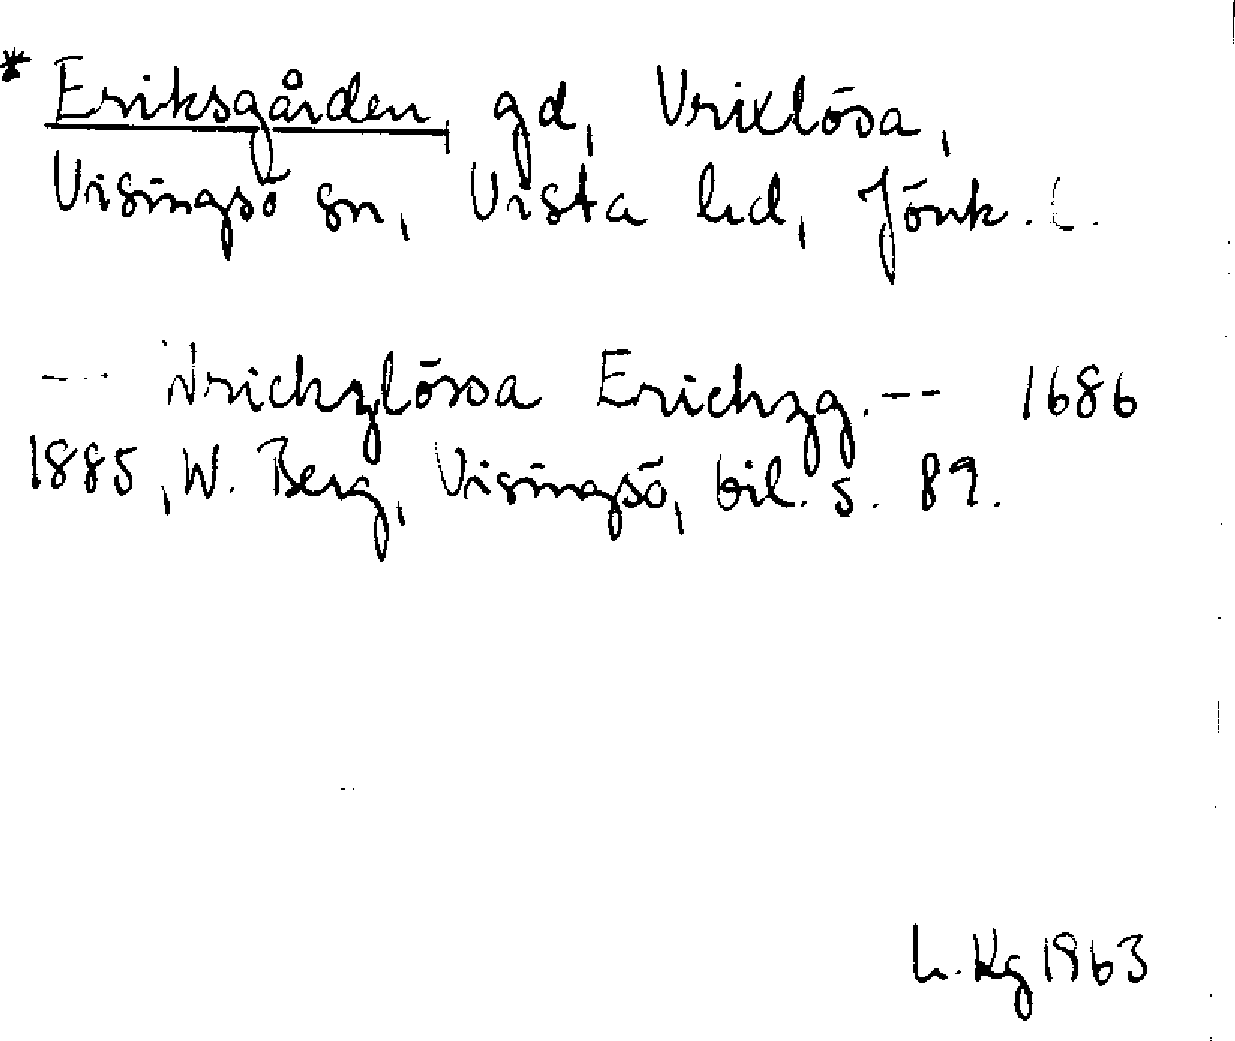 * Eriksgården, gd, Vrixlösa,
Visingsö sn, Vista hd, Jönk. L.
--- Wrichzlössa Erichzg. -- 1686
1885, W. Berg, Visingsö, bil. s. 89.
L. Kg 1963